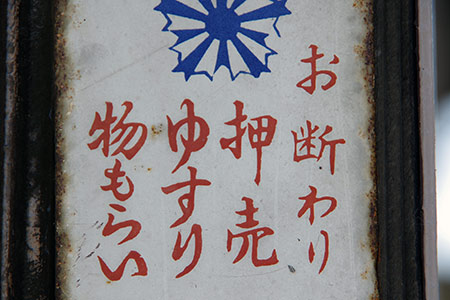 お断わり
押売
ゆすり
物もらい